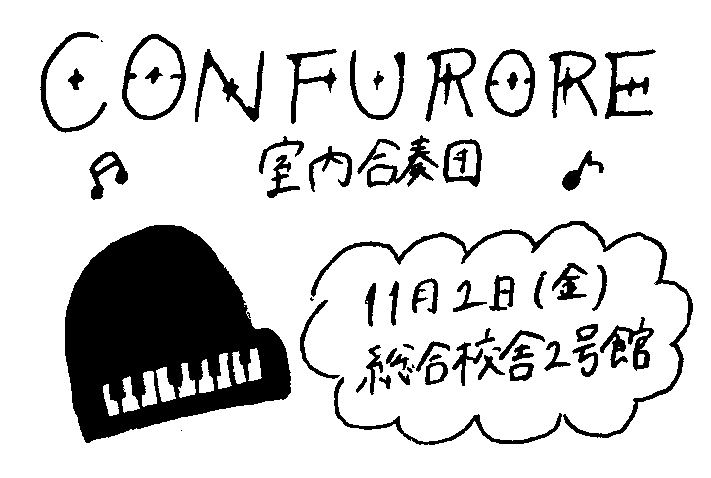 CONFURORE
室内合奏団
11月2日(金)
総合校舎2号館